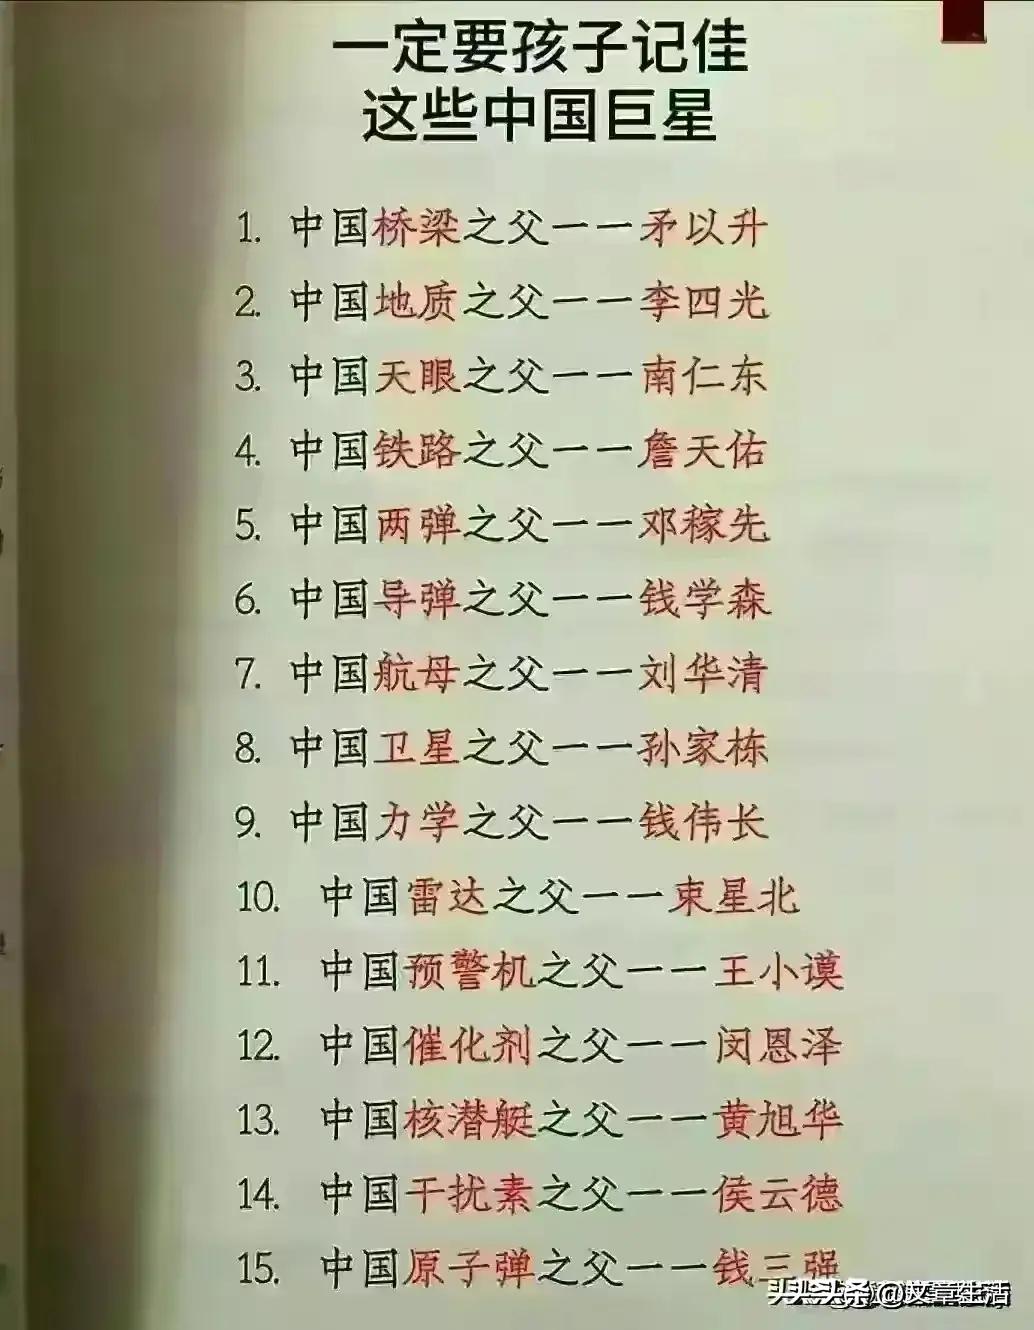 一定要孩子记佳
这些中国巨星
1. 中国桥梁之父一一矛以升
2. 中国地质之父一一李四光
3. 中国天眼之父一一南仁东
4. 中国铁路之父一一詹天佑
5. 中国两弹之父一一邓稼先
6. 中国导弹之父一一钱学森
7. 中国航母之父一一刘华清
8. 中国卫星之父一一孙家栋
9. 中国力学之父一一钱伟长
10. 中国雷达之父一一束星北
11. 中国预警机之父一一王小谟
12. 中国催化剂之父一一闵恩泽
13. 中国核潜艇之父一一黄旭华
14. 中国干扰素之父一一侯云德
15. 中国原子弹之父一一钱三强
头条 @文章生活